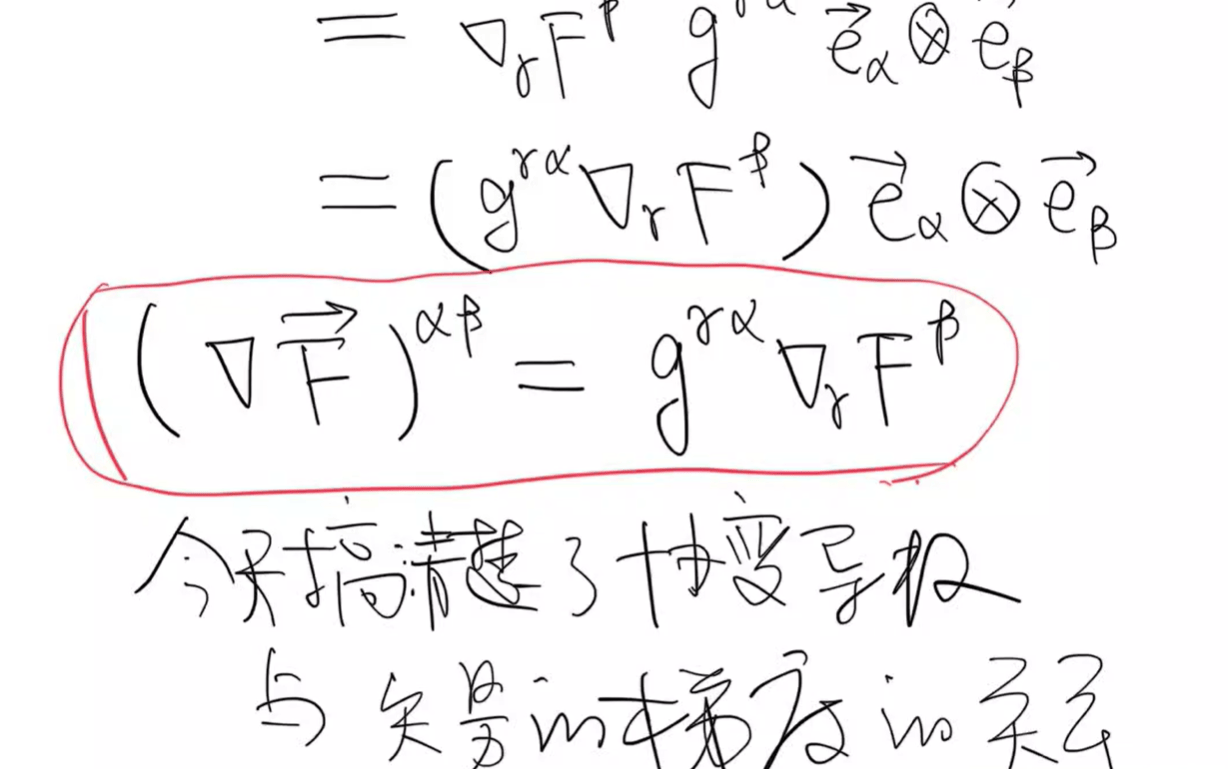 = ∇_γ F^β g^{γα} \vec{e}_α ⊗ \vec{e}_β
= (g^{γα} ∇_γ F^β) \vec{e}_α ⊗ \vec{e}_β
(∇\vec{F})^{αβ} = g^{γα} ∇_γ F^β
今天搞清楚了协变导数
与矢量的梯度的关系